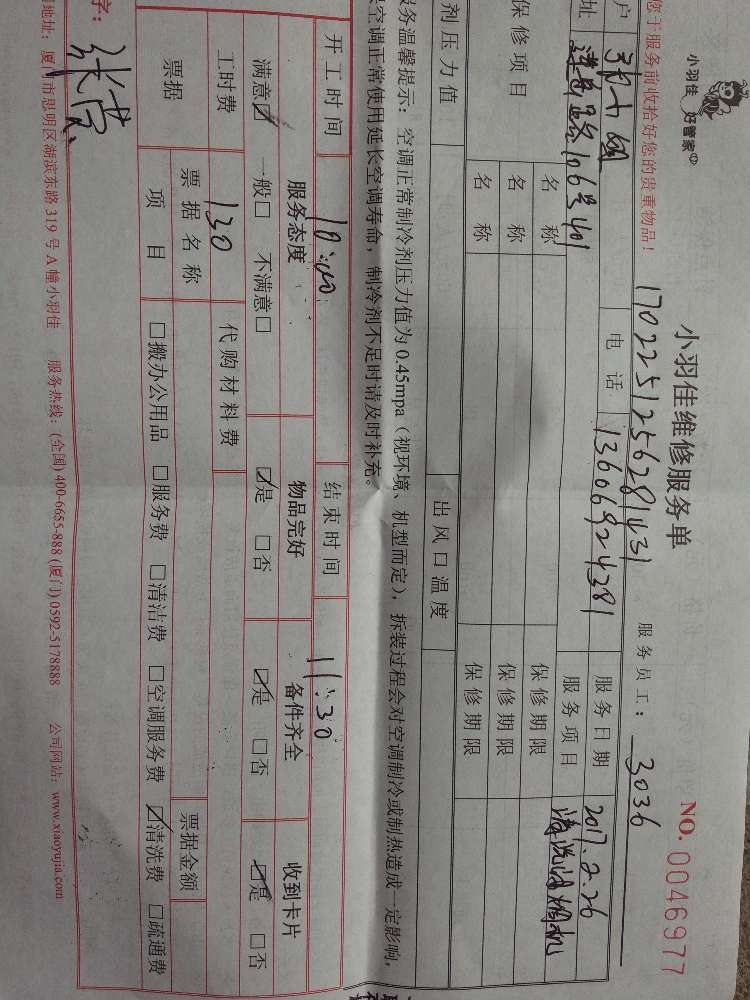 小羽佳 好管家
小羽佳维修服务单
NO.0046977
1702251256281431
您于服务前收拾好您的贵重物品！
服务员工：3036
户
电话 13606924381 服务日期 2017.2.26
址 莲岳路106号401 服务项目 清洗油烟机
保修项目 名称 保修期限
名称 保修期限
名称 保修期限
剂压力值 出风口温度
务温馨提示：空调正常制冷剂压力值为0.45mpa（视环境、机型而定），拆装过程会对空调制冷或制热造成一定影响，
空调正常使用延长空调寿命，制冷剂不足时请及时补充。
开工时间 10:00 结束时间 11:30
服务态度 物品完好 备件齐全 收到卡片
满意☑ 一般□ 不满意□ ☑是 □否 ☑是 □否 ☑是 □否
工时费 130 代购材料费
票据 票据名称 票据金额
项目 □搬办公用品 □服务费 □清洁费 □空调服务费 ☑清洗费 □疏通费
字：
地址：厦门市思明区湖滨东路319号A幢小羽佳 服务热线：(全国)400-6655-888 (厦门)0592-5178888 公司网站：www.xiaoyujia.com